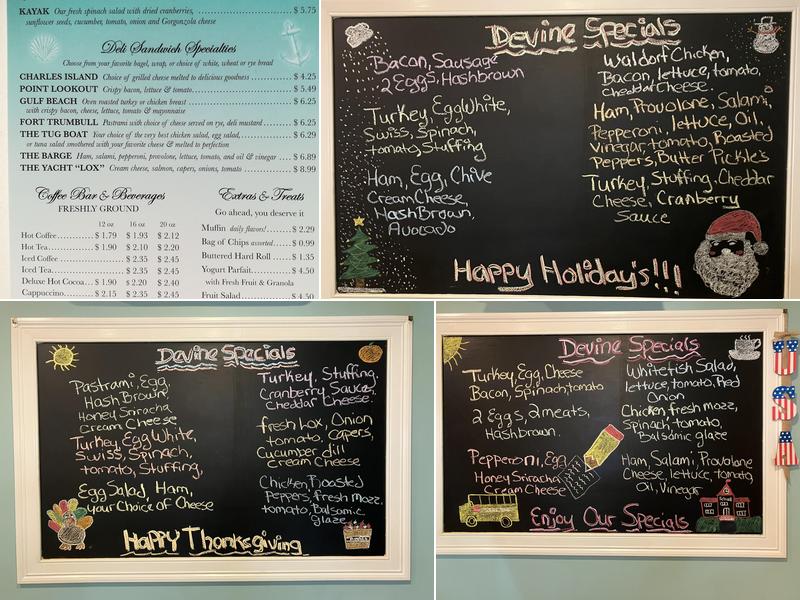 KAYAK Our fresh spinach salad with dried cranberries, .......... $ 5.75
sunflower seeds, cucumber, tomato, onion and Gorgonzola cheese
Deli Sandwich Specialties
Choose from your favorite bagel, wrap, or choice of white, wheat or rye bread
CHARLES ISLAND Choice of grilled cheese melted to delicious goodness .......... $ 4.25
POINT LOOKOUT Crispy bacon, lettuce & tomato .......... $ 5.49
GULF BEACH Oven roasted turkey or chicken breast .......... $ 6.25
with crispy bacon, cheese, lettuce, tomato & mayonnaise
FORT TRUMBULL Pastrami with choice of cheese served on rye, deli mustard .......... $ 6.25
THE TUG BOAT Your choice of the very best chicken salad, egg salad, .......... $ 6.29
or tuna salad smothered with your favorite cheese & melted to perfection
THE BARGE Ham, salami, pepperoni, provolone, lettuce, tomato, oil & vinegar .... $ 6.89
THE YACHT "LOX" Cream cheese, salmon, capers, onions, tomato .......... $ 8.99
Coffee Bar & Beverages
FRESHLY GROUND
12 oz 16 oz 20 oz
Hot Coffee .......... $ 1.79 $ 1.93 $ 2.12
Hot Tea .......... $ 1.90 $ 2.10 $ 2.20
Iced Coffee .......... $ 2.35 $ 2.45
Iced Tea .......... $ 2.35 $ 2.45
Deluxe Hot Cocoa ... $ 1.90 $ 2.20 $ 2.40
Cappuccino .......... $ 2.15 $ 2.35 $ 2.45
Extras & Treats
Go ahead, you deserve it
Muffin daily flavors! .......... $ 2.29
Bag of Chips assorted .......... $ 0.99
Buttered Hard Roll .......... $ 1.35
Yogurt Parfait .......... $ 4.50
with Fresh Fruit & Granola
Fruit Salad .......... $ 4.50
Devine Specials
Bacon, Sausage
2 Eggs, Hashbrown
Turkey, Egg White,
Swiss, Spinach,
tomato, Stuffing
Ham, Egg, Chive
Cream Cheese,
HashBrown,
Avocado
Waldorf Chicken,
Bacon, lettuce, tomato,
Cheddar Cheese.
Ham, Provolone, Salami,
Pepperoni, lettuce, Oil,
Vinegar, tomato, Roasted
Peppers, Butter Pickle's
Turkey, Stuffing, Cheddar
Cheese, Cranberry
Sauce
Happy Holiday's!!!
Devine Specials
Pastrami, Egg,
Hash Brown,
Honey Sriracha
Cream Cheese
Turkey Egg White,
Swiss, Spinach,
tomato, Stuffing,
Egg Salad, Ham,
your Choice of Cheese
Turkey, Stuffing,
Cranberry Sauce,
Cheddar Cheese.
fresh Lox, Onion
tomato, Capers,
Cucumber dill
cream Cheese
Chicken, Roasted
Peppers, fresh Mozz,
tomato, Balsamic
glaze
HAPPY Thanksgiving
Devine Specials
Turkey, Egg, Cheese
Bacon, Spinach, tomato
2 Eggs, 2 meats,
Hashbrown.
Pepperoni, Egg
Honey Sriracha
Cream Cheese
Whitefish Salad,
lettuce, tomato, Red
Onion
Chicken, fresh mozz,
Spinach, tomato,
Balsamic glaze
Ham, Salami, Provolone
Cheese, lettuce, tomato,
Oil, Vinegar
Enjoy Our Specials
U
S
A